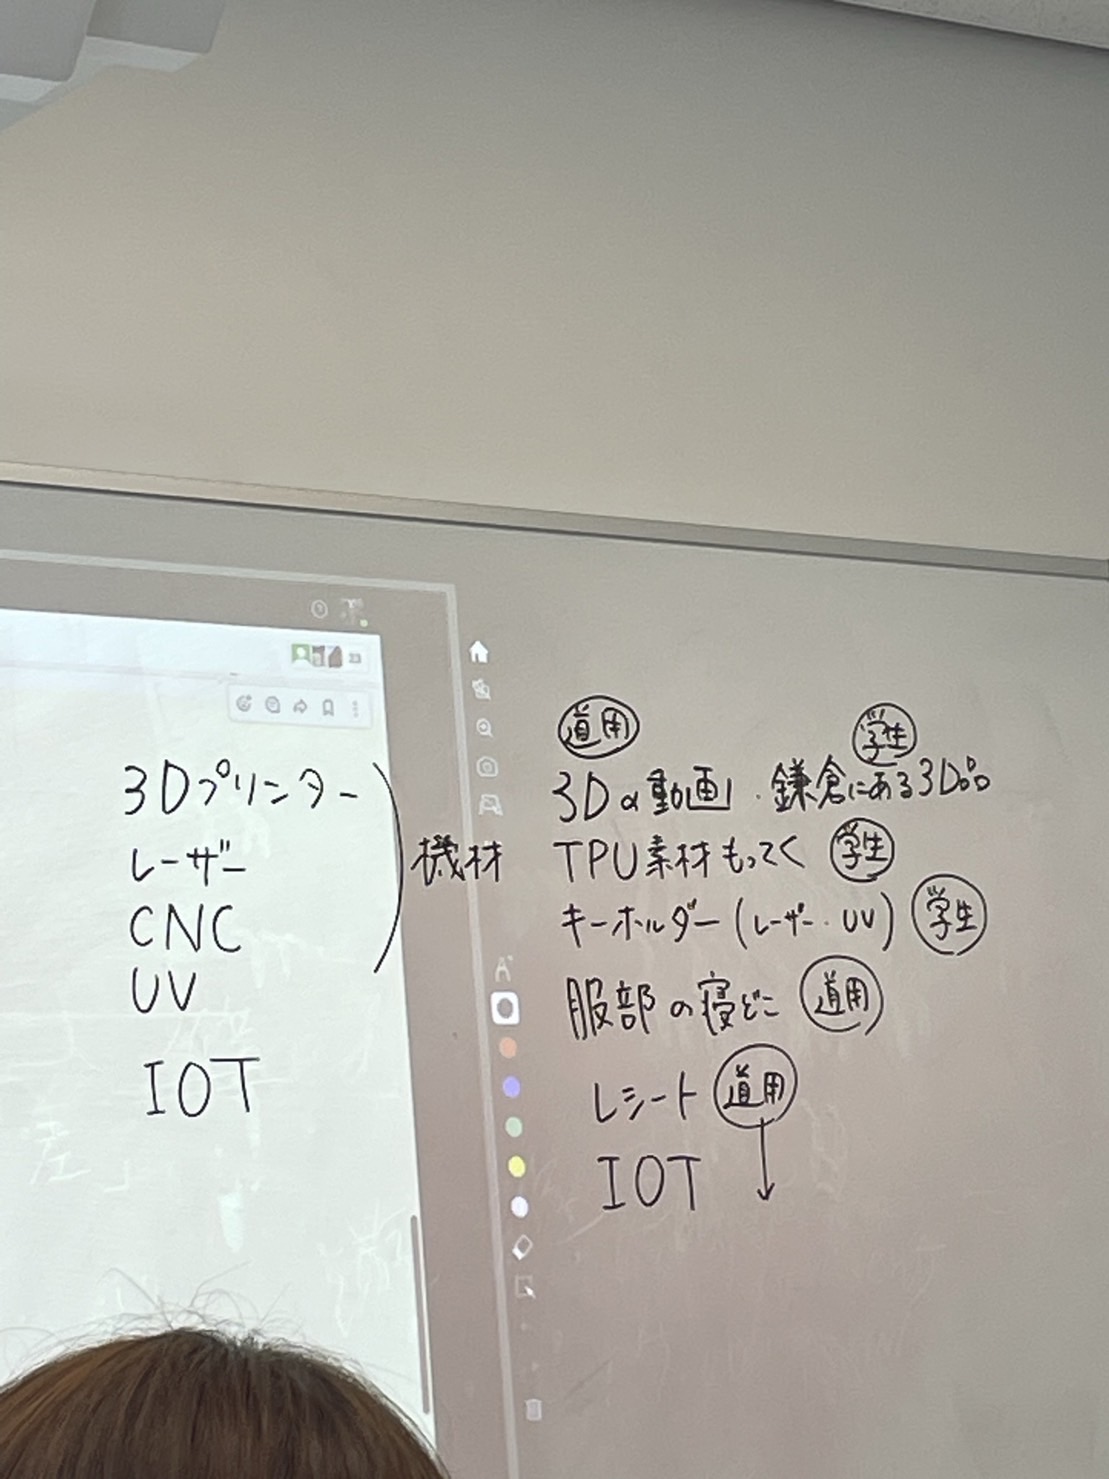 3Dプリンター
レーザー
CNC
UV
機材
IOT
道用 学生
3Dの動画・鎌倉にある3D品
TPU素材もってく 学生
キーホルダー(レーザー・UV) 学生
服部の寝どこ 道用
レシート 道用
IOT ↓